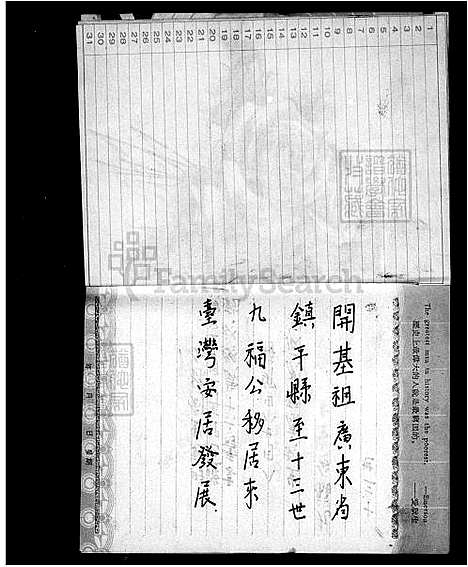 1
2
3
4
5
6
7
8
9
10
11
12
13
14
15
16
17
18
19
20
21
22
23
24
25
26
27
28
29
30
31
FamilySearch
The greatest man in history was the poorest.
—Emerson
歷史上最偉大的人就是最窮困的。
開基祖廣東省
鎮平縣至十三世
九福公移居來
臺灣安居發展
年 月 日 星期